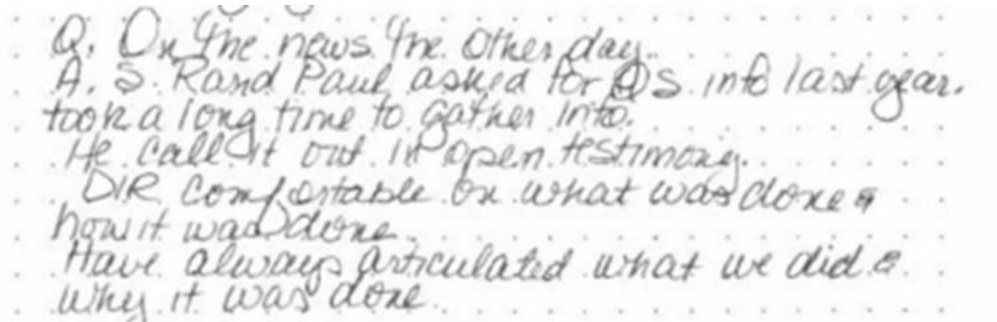 Q. On the news the other day.
A. S. Rand Paul asked for QS info last year.
took a long time to gather info.
He call it out in open testimony.
DIR comfortable on what was done &
how it was done.
Have always articulated what we did &
why it was done.